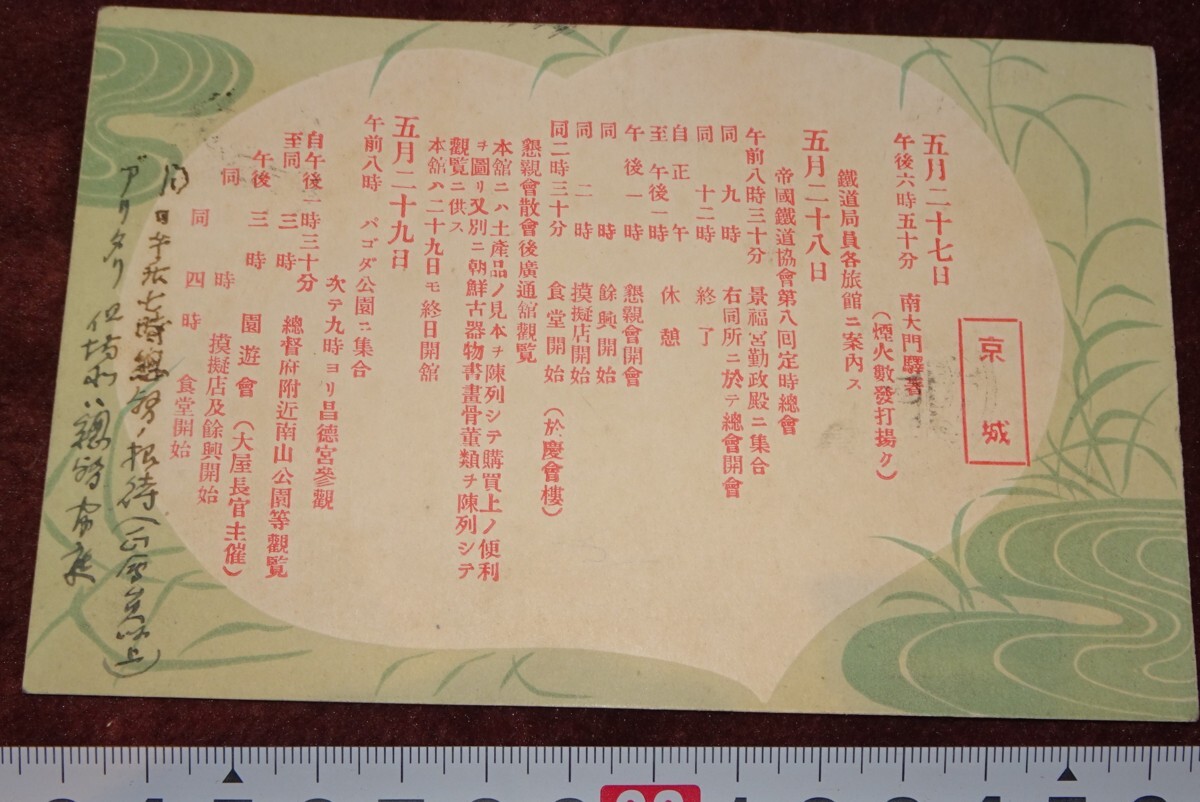 京城
五月二十七日
午後六時五十分 南大門驛著
(煙火數發打揚ク)
鐵道局員各旅館ニ案內ス
五月二十八日
帝國鐵道協會第八回定時總會
午前八時三十分 景福宮勤政殿ニ集合
同 九時 右同所ニ於テ總會開會
同 十二時 終了
自正午
至午後一時 休憩
午後一時 懇親會開會
同 時 餘興開始
同 二時 摸擬店開始
同二時三十分 食堂開始 (於慶會樓)
懇親會散會後廣通舘觀覽
本舘ニハ土產品ノ見本ヲ陳列シテ購買上ノ便利
ヲ圖リ又別ニ朝鮮古器物書畫骨董類ヲ陳列シテ
觀覽ニ供ス
本舘ハ二十九日モ終日開舘
五月二十九日
午前八時 パゴダ公園ニ集合
次テ九時ヨリ昌德宮參觀
自午後一時三十分
至同 三時 總督府附近南山公園等觀覽
午後三時 園遊會(大屋長官主催)
同 時 摸擬店及餘興開始
同 四時 食堂開始
同日午后七時總督ノ招待(正會員以上)
アリタリ 但場所ハ總督官庭